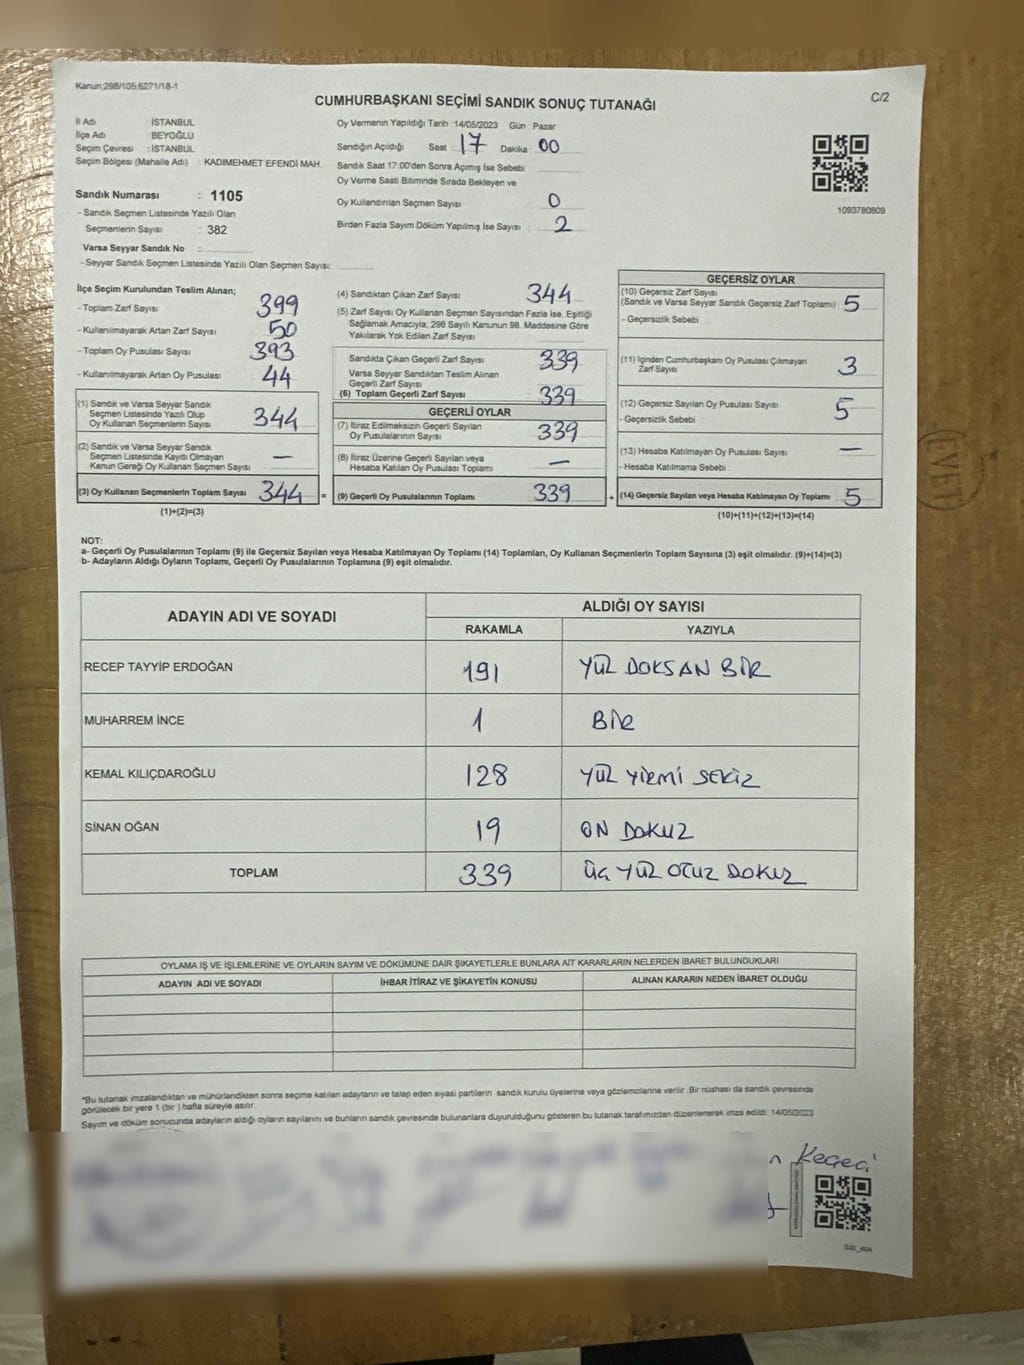 Kanun;298/105.6271/18-1
CUMHURBAŞKANI SEÇİMİ SANDIK SONUÇ TUTANAĞI
C/2
İl Adı İSTANBUL
İlçe Adı : BEYOĞLU
Seçim Çevresi : İSTANBUL
Seçim Bölgesi (Mahalle Adı) : KADIMEHMET EFENDİ MAH.
Sandık Numarası : 1105
- Sandık Seçmen Listesinde Yazılı Olan
Seçmenlerin Sayısı : 382
Varsa Seyyar Sandık No :
- Seyyar Sandık Seçmen Listesinde Yazılı Olan Seçmen Sayısı:
Oy Vermenin Yapıldığı Tarih : 14/05/2023 Gün : Pazar
Sandığın Açıldığı Saat 17 Dakika 00
Sandık Saat 17:00'den Sonra Açımış İse Sebebi
Oy Verme Saati Bitiminde Sırada Bekleyen ve
Oy Kullandırılan Seçmen Sayısı 0
Birden Fazla Sayım Döküm Yapılmış İse Sayısı 2
1093780809
İlçe Seçim Kurulundan Teslim Alınan;
- Toplam Zarf Sayısı 399
- Kullanılmayarak Artan Zarf Sayısı 50
- Toplam Oy Pusulası Sayısı 393
- Kullanılmayarak Artan Oy Pusulası 44
(1) Sandık ve Varsa Seyyar Sandık
Seçmen Listesinde Yazılı Olup
Oy Kullanan Seçmenlerin Sayısı 344
(2) Sandık ve Varsa Seyyar Sandık
Seçmen Listesinde Kayıtlı Olmayan
Kanun Gereği Oy Kullanan Seçmen Sayısı —
(3) Oy Kullanan Seçmenlerin Toplam Sayısı 344 =
(1)+(2)=(3)
(4) Sandıktan Çıkan Zarf Sayısı 344
(5) Zarf Sayısı Oy Kullanan Seçmen Sayısından Fazla İse, Eşitliği
Sağlamak Amacıyla, 298 Sayılı Kanunun 98. Maddesine Göre
Yakılarak Yok Edilen Zarf Sayısı
Sandıkta Çıkan Geçerli Zarf Sayısı 339
Varsa Seyyar Sandıktan Teslim Alınan
Geçerli Zarf Sayısı
(6) Toplam Geçerli Zarf Sayısı 339
GEÇERLİ OYLAR
(7) İtiraz Edilmeksizin Geçerli Sayılan
Oy Pusulalarının Sayısı 339
(8) İtiraz Üzerine Geçerli Sayılan veya
Hesaba Katılan Oy Pusulası Toplamı —
(9) Geçerli Oy Pusulalarının Toplamı 339 +
GEÇERSİZ OYLAR
(10) Geçersiz Zarf Sayısı
(Sandık ve Varsa Seyyar Sandık Geçersiz Zarf Toplamı) 5
- Geçersizlik Sebebi :
(11) İçinden Cumhurbaşkanı Oy Pusulası Çıkmayan
Zarf Sayısı 3
(12) Geçersiz Sayılan Oy Pusulası Sayısı 5
- Geçersizlik Sebebi
(13) Hesaba Katılmayan Oy Pusulası Sayısı —
- Hesaba Katılmama Sebebi :
(14) Geçersiz Sayılan veya Hesaba Katılmayan Oy Toplamı 5
(10)+(11)+(12)+(13)=(14)
NOT:
a- Geçerli Oy Pusulalarının Toplamı (9) ile Geçersiz Sayılan veya Hesaba Katılmayan Oy Toplamı (14) Toplamları, Oy Kullanan Seçmenlerin Toplam Sayısına (3) eşit olmalıdır. (9)+(14)=(3)
b- Adayların Aldığı Oyların Toplamı, Geçerli Oy Pusulalarının Toplamına (9) eşit olmalıdır.
ADAYIN ADI VE SOYADI ALDIĞI OY SAYISI
RAKAMLA YAZIYLA
RECEP TAYYİP ERDOĞAN 191 YÜZ DOKSAN BİR
MUHARREM İNCE 1 BİR
KEMAL KILIÇDAROĞLU 128 YÜZ YİRMİ SEKİZ
SİNAN OĞAN 19 ON DOKUZ
TOPLAM 339 ÜÇ YÜZ OTUZ DOKUZ
OYLAMA İŞ VE İŞLEMLERİNE VE OYLARIN SAYIM VE DÖKÜMÜNE DAİR ŞİKAYETLERLE BUNLARA AİT KARARLARIN NELERDEN İBARET BULUNDUKLARI
ADAYIN ADI VE SOYADI İHBAR İTİRAZ VE ŞİKAYETİN KONUSU ALINAN KARARIN NEDEN İBARET OLDUĞU
"Bu tutanak imzalandıktan ve mühürlendikten sonra seçime katılan adayların ve talep eden siyasi partilerin sandık kurulu üyelerine veya gözlemcilerine verilir. Bir nüshası da sandık çevresinde
görülecek bir yere 1 (bir ) hafta süreyle asılır.
Sayım ve döküm sonucunda adayların aldığı oyların sayılarını ve bunların sandık çevresinde bulunanlara duyurulduğunu gösteren bu tutanak tarafımızdan düzenlenerek imza edildi. 14/05/2023
Keçeci
EVET